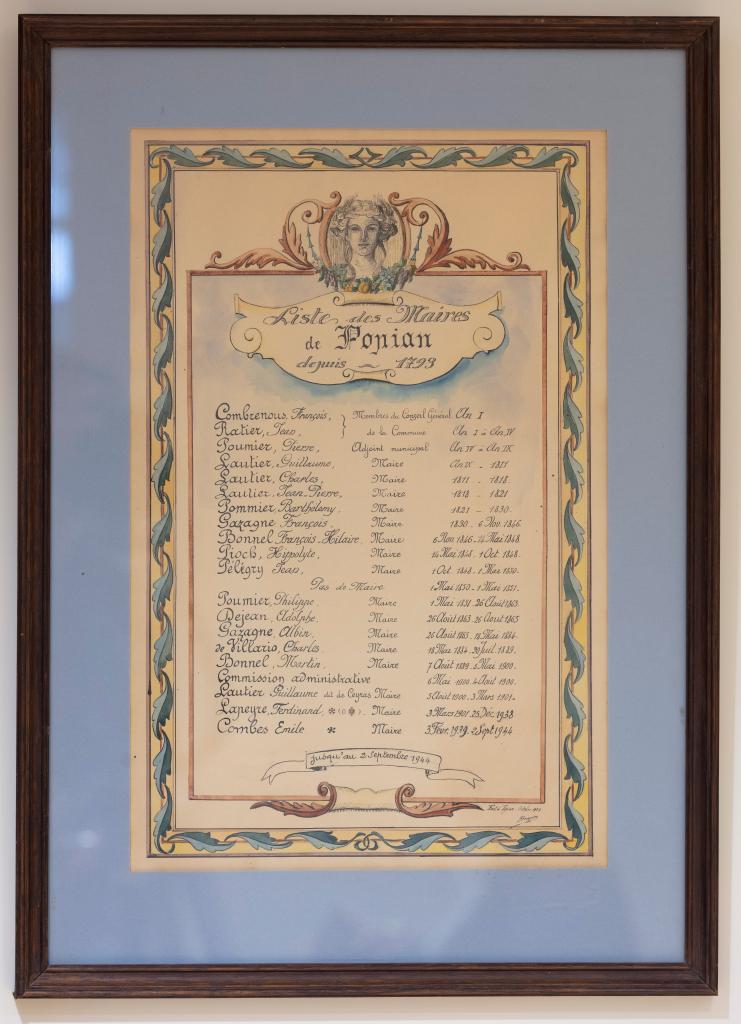 Liste des Maires
de Popian
depuis ~ 1793
Combrenous, François, } Membres du Conseil Général An I
Ratier, Jean, de la Commune An I à An IV
Poumier, Pierre, Adjoint municipal An IV à An IX
Lautier, Guillaume, Maire An IX - 1811
Lautier, Charles, Maire 1811 - 1818.
Lautier, Jean-Pierre, Maire 1818 - 1821
Pommier, Barthélemy, Maire 1821 - 1830.
Gazagne François, Maire 1830. 6 Nov. 1846.
Bonnel François-Hilaire, Maire 6 Nov. 1846. 14 Mai 1848
Pioch, Hippolyte, Maire 14 Mai 1848. 1 Oct. 1848.
Péligry Jean, Maire 1 Oct. 1848. 1 Mai 1850.
Pas de Maire 1 Mai 1850 - 1 Mai 1851.
Poumier, Philippe, Maire 1 Mai 1851. 26 Août 1863.
Dejean, Adolphe, Maire 26 Août 1863. 26 Août 1865
Gazagne, Albin, Maire 26 Août 1865. 18 Mai 1884.
de Villario, Charles, Maire 18 Mai 1884. 20 Juil. 1889.
Bonnel, Martin, Maire 7 Août 1889. 6 Mai 1900.
Commission administrative 6 Mai 1900. 4 Août 1900.
Lautier Guillaume dit de Ceyras Maire 5 Août 1900. 3 Mars 1901.
Lapeyre, Ferdinand, Maire 3 Mars 1901. 25 Déc. 1938
Combes Emile Maire 3 Févr. 1939. 2 Sept. 1944
jusqu'au 2 Septembre 1944